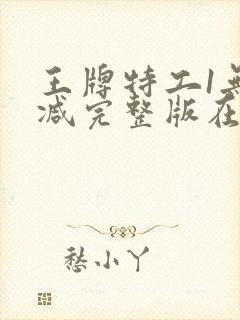 王牌特工1无
减完整版在
愁小丫